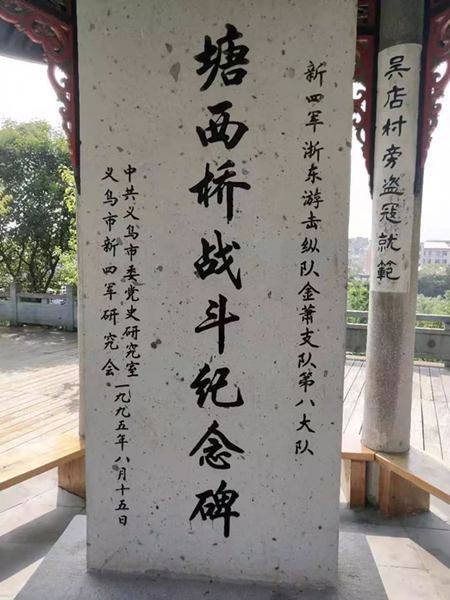 吴店村旁盗寇就範
新四军浙东游击纵队金萧支队第八大队
塘西桥战斗纪念碑
中共义乌市委党史研究室
义乌市新四军研究会
一九九五年八月十五日